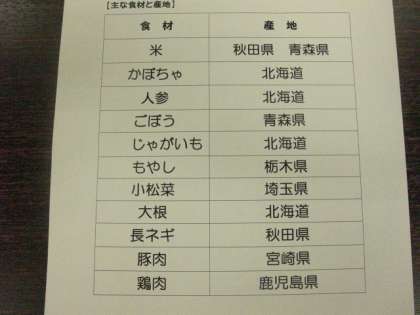 【主な食材と産地】
食 材 産 地
米 秋田県 青森県
かぼちゃ 北海道
人参 北海道
ごぼう 青森県
じゃがいも 北海道
もやし 栃木県
小松菜 埼玉県
大根 北海道
長ネギ 秋田県
豚肉 宮崎県
鶏肉 鹿児島県